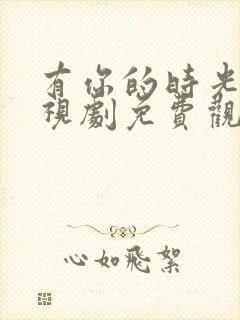 有你的時光
視劇免費觀
心如飛絮